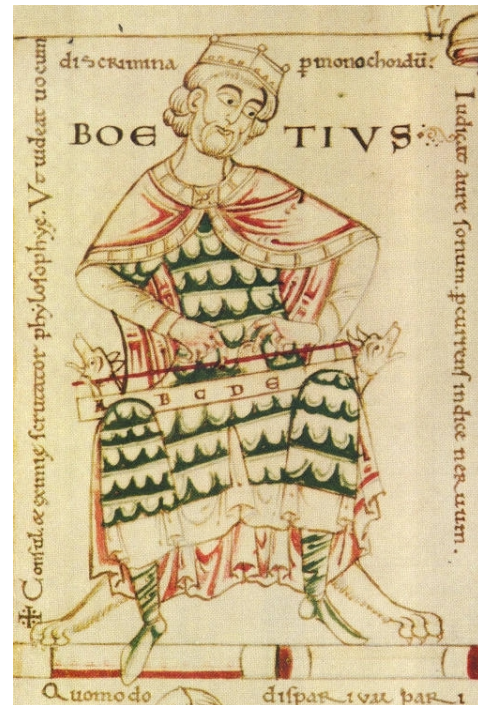 ✠ Consul & eximię scrutator phylosophyę. Vt uideat uocum
discrimina ꝑ monochordū:
BOE TIVS
Iudicat aure sonum. ꝑcurrens indice neruum.
A B C D E
Quomodo dispar pari